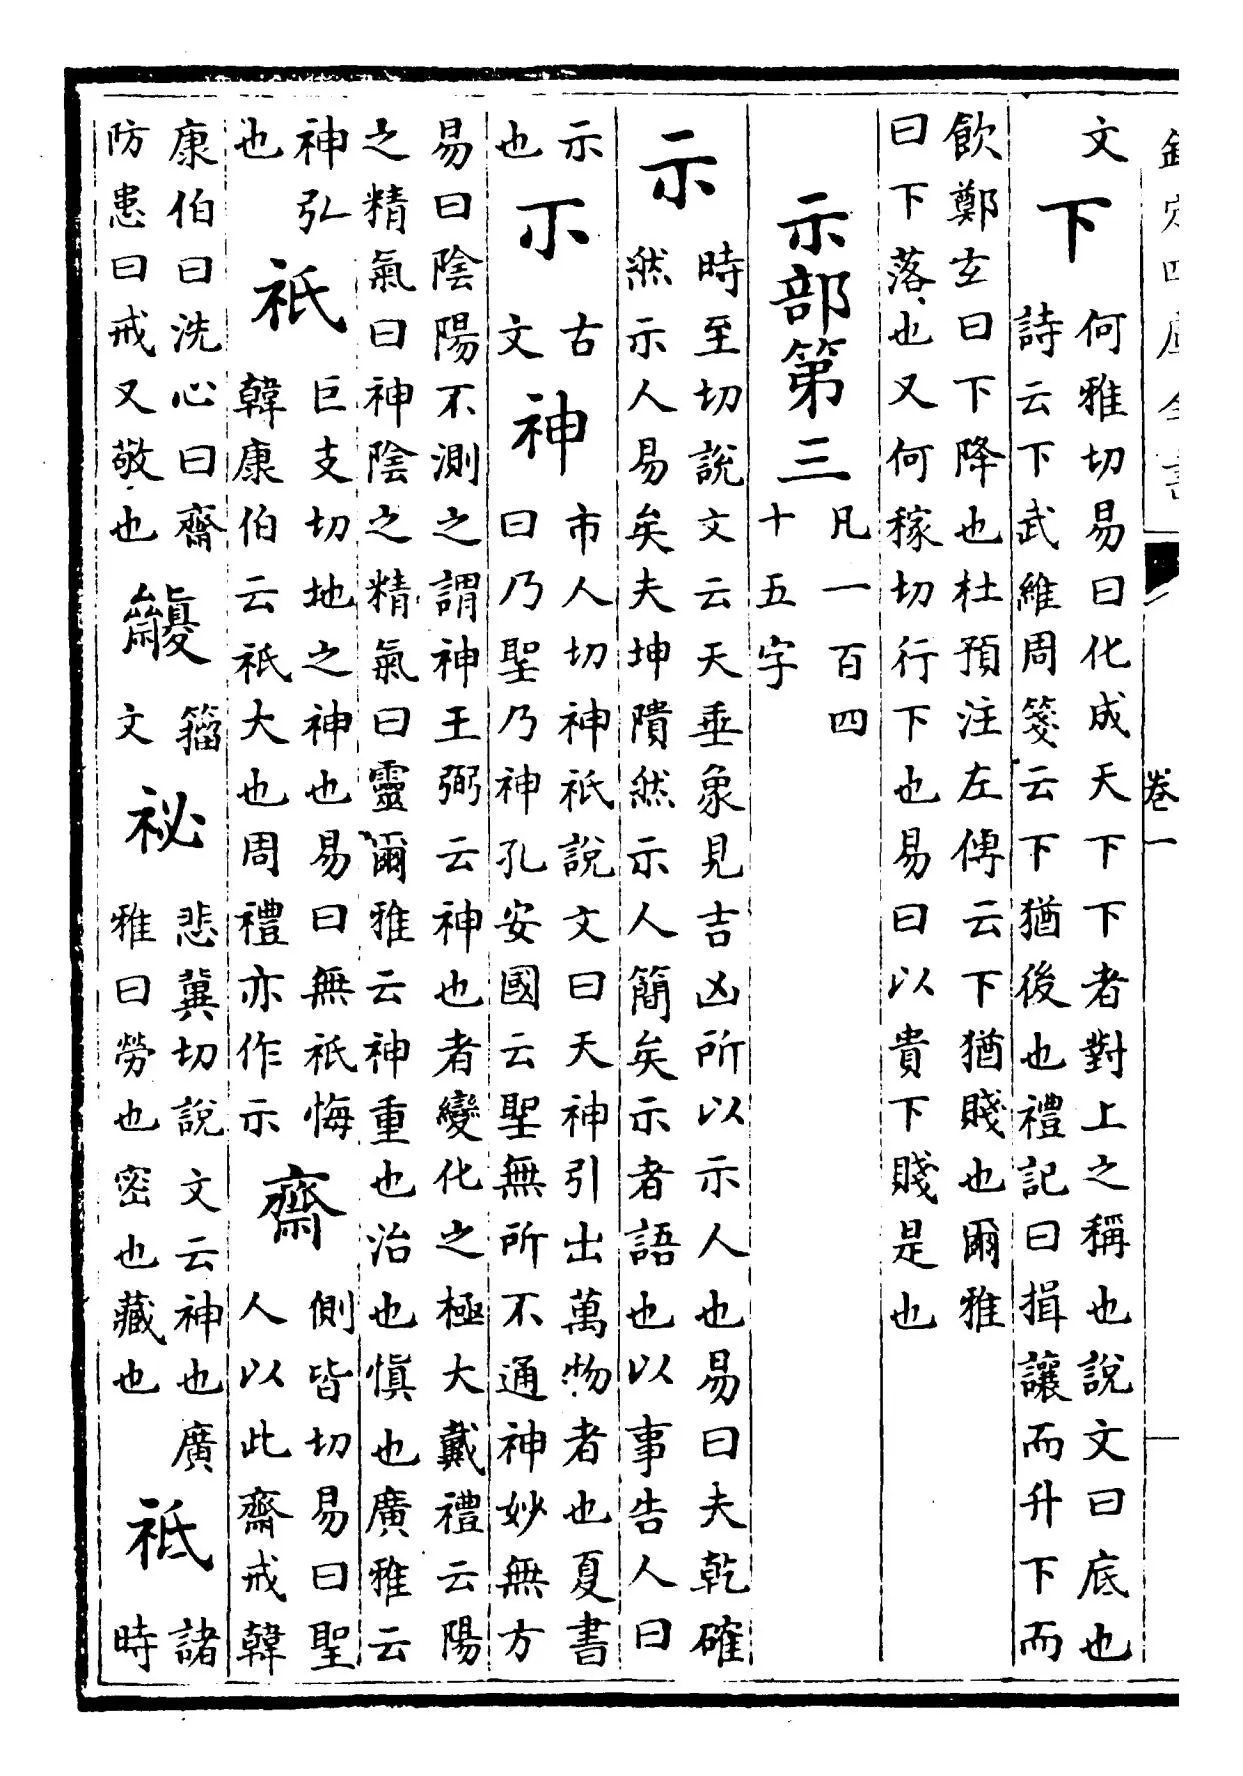 欽定四庫全書 卷一
文
下
何雅切易曰化成天下下者對上之稱也說文曰底也
詩云下武維周箋云下猶後也禮記曰揖讓而升下而
飲鄭玄曰下降也杜預注左傳云下猶賤也爾雅
曰下落也又何稼切行下也易曰以貴下賤是也
示部第三
凡一百四
十五字
示
時至切說文云天垂象見吉凶所以示人也易曰夫乾確
然示人易矣夫坤隤然示人簡矣示者語也以事告人曰
示
也
𥘅
古
文
神
市人切神祇說文曰天神引出萬物者也夏書
曰乃聖乃神孔安國云聖無所不通神妙無方
易曰陰陽不測之謂神王弼云神也者變化之極大戴禮云陽
之精氣曰神陰之精氣曰靈爾雅云神重也治也慎也廣雅云
神弘
也
祇
巨支切地之神也易曰無祇悔
韓康伯云祇大也周禮亦作示
齋
側皆切易曰聖
人以此齋戒韓
康伯曰洗心曰齋
防患曰戒又敬也
籀
文
祕
悲冀切說文云神也廣
雅曰勞也密也藏也
祗
諸
時